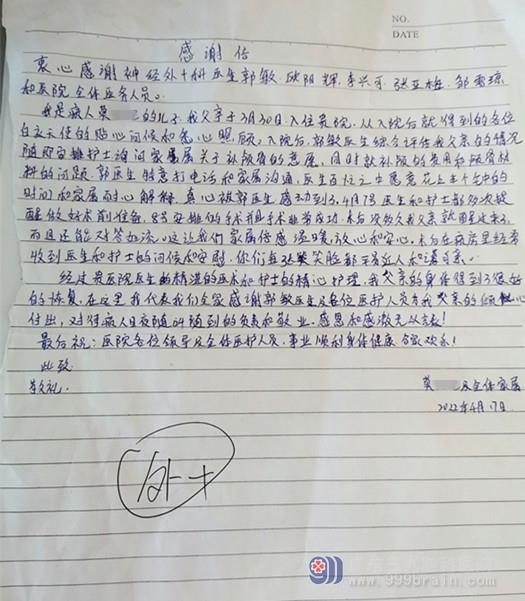 NO.
DATE
感谢信
衷心感谢神经外十科医生郭敏、欧阳辉、李兴可、张亚雄、邹雪琼
和医院全体医务人员。
我是病人莫 的儿子，我父亲于3月30日入住贵院，从入院后就得到的各位
白衣天使的贴心问候和悉心照顾，入院后，郭敏医生综合评估我父亲的情况
随即安排护士询问家属关于补颅骨的意愿，同时就补颅的费用和颅骨材
料的问题，郭医生特意打电话和家属沟通，医生百忙之中愿意花上半个多钟的
时间和家属耐心解释，真心被郭医生感动到了，4月7日医生和护士都多次提
醒做好术前准备，8号安排的手术并且手术非常成功，术后没多久我父亲就醒过来了，
而且还能对答如流。这让我们家属倍感温暖，放心和安心。术后在病房里经常
收到医生和护士的问候和安慰，你们每张笑脸都平易近人和蔼可亲。
经过贵医院医生的精湛的医术和护士的精心护理，我父亲的身体得到了很好
的恢复，在这里我代表我们全家感谢郭敏医生及各位医护人员为我父亲的倾心
付出，对待病人日夜随叫随到的负责和敬业，感恩和感激无以言表！
最后祝：医院各位领导及全体医护人员，事业顺利身体健康 合家欢乐！
此致
敬礼
莫 及全体家属
2022年4月17日
外十
999
www.999brain.com